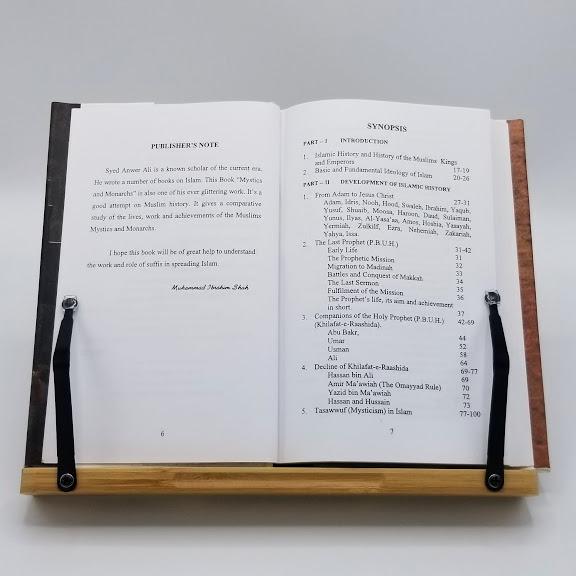 PUBLISHER'S NOTE
Syed Anwer Ali is a known scholar of the current era.
He wrote a number of books on Islam. This Book "Mystics
and Monarchs" is also one of his ever glittering work. It's a
good attempt on Muslim history. It gives a comparative
study of the lives, work and achievements of the Muslims
Mystics and Monarchs.
I hope this book will be of great help to understand
the work and role of suffis in spreading Islam.
Muhammad Ibrahim Shah
6
SYNOPSIS
PART – I INTRODUCTION
1. Islamic History and History of the Muslims Kings
and Emperors 17-19
2. Basic and Fundamental Ideology of Islam 20-26
PART – II DEVELOPMENT OF ISLAMIC HISTORY
1. From Adam to Jesus Christ 27-31
Adam, Idris, Nooh, Hood, Swaleh, Ibrahim, Yaqub,
Yusuf, Shuaib, Moosa, Haroon, Daud, Sulaiman,
Yunus, Ilyas, Al-Yasa'aa, Amos, Hoshia, Yasayah,
Yermiah, Zulkilf, Ezra, Nehemiah, Zakariah,
Yahya, Issa.
2. The Last Prophet (P.B.U.H.) 31-42
Early Life 31
The Prophetic Mission 32
Migration to Madinah 33
Battles and Conquest of Makkah 34
The Last Sermon 35
Fulfilment of the Mission 36
The Prophet's life, its aim and achievement
in short 37
3. Companions of the Holy Prophet (P.B.U.H.) 42-69
(Khilafat-e-Raashida).
Abu Bakr, 44
Umar 52
Usman 58
Ali 64
4. Decline of Khilafat-e-Raashida 69-77
Hassan bin Ali 69
Amir Ma'awiah (The Omayyad Rule) 70
Yazid bin Ma'awiah 72
Hassan and Hussain 73
5. Tasawwuf (Mysticism) in Islam 77-100
7